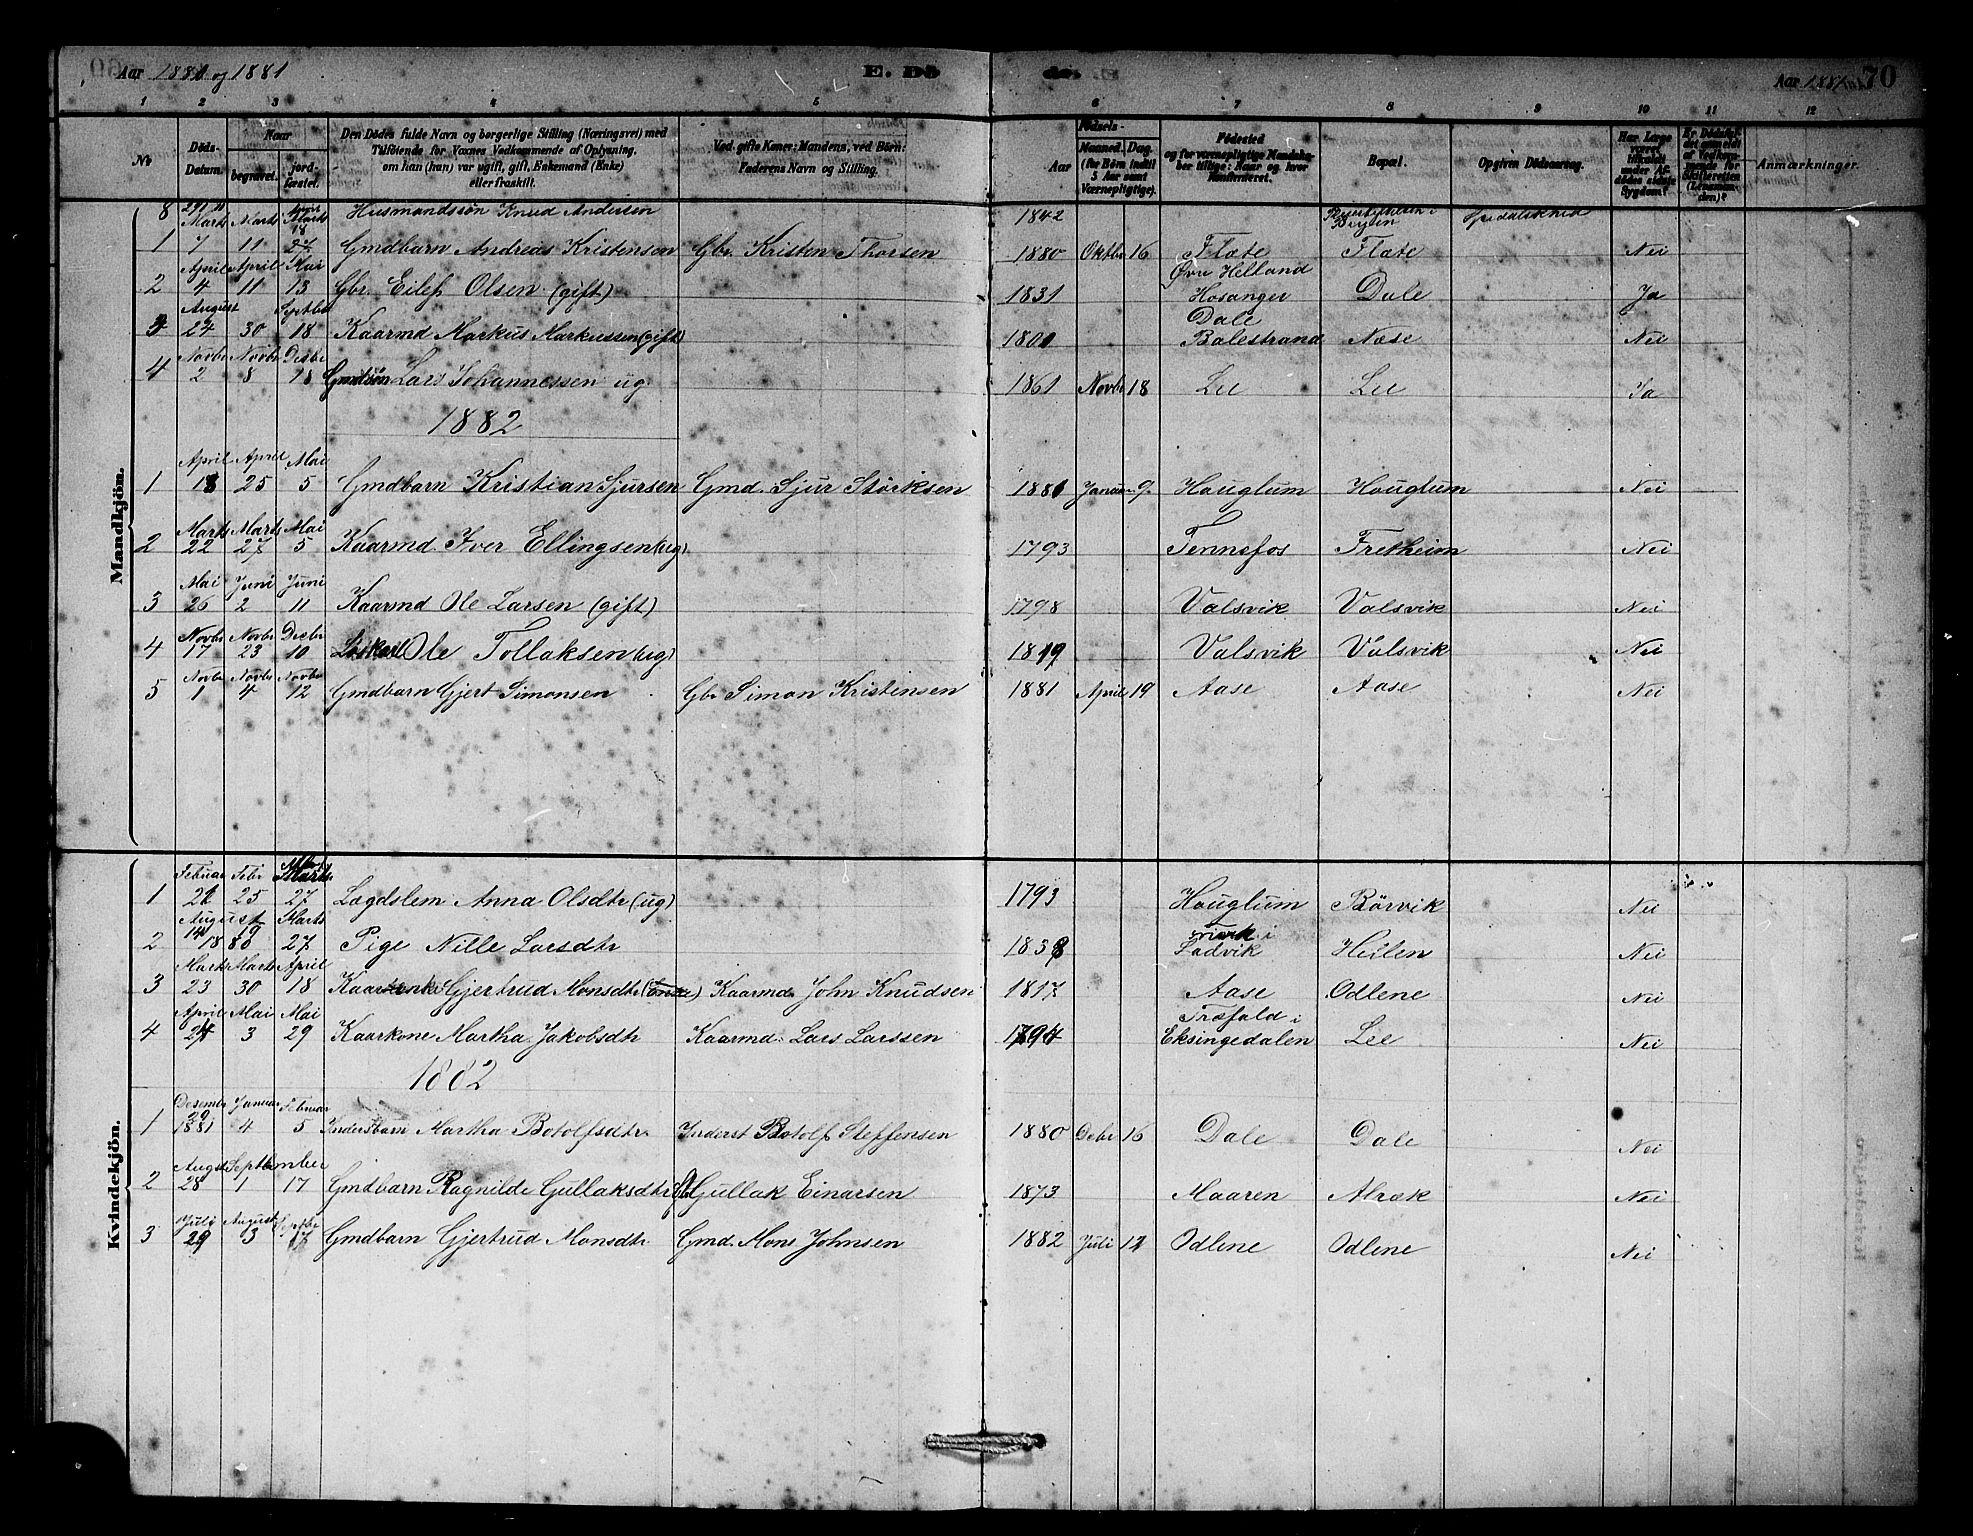 Aar 1881 og 1881
E. Dö
de. 
Aar 1881
70
1 2 3 4 5 6 7 8 9 10 11 12
No
Döds-Datum.
Naar
begravet.
jord-fæstet.
Den Dödes fulde Navn og borgerlige Stilling (Næringsvei) med
Tilföiende for Voxnes Vedkommende af Oplysning,
om han (hun) var ugift, gift, Enkemand (Enke)
eller fraskilt.
Ved gifte Koner: Mandens, ved Börn:
Faderens Navn og Stilling.
Födsels-
Aar
Maaned. Dag.
(for Börn indtil
5 Aar samt
Værnepligtige).
Födested
og for værnepligtige Mandska-
ber tillige: Naar og hvor
konfirmeret.
Bopæl.
Opgiven Dödsaarsag.
Har Læge
været
tilkaldt
under Af-
dödes sidste
Sygdom?
Er Dödsfal-
det anmeldt
af Vedkom-
mende for
Skifteretten
(Lensman-
den)?
Anmærkninger.
Mandkjön.
8 Husmandssön Knud Andersen 1842 Spedalskhed
Marts Marts
1 7 11 27 Gmdbarn Andreas Kristensen Gbr. Kristen Thorsen 1880 Oktbr 16 Flæte Flæte Nei
April April Mai Øvre Helland
2 4 11 13 Gbr. Eilef Olsen (gift) 1831 Hosanger Dale Ja
August Septbr Dale
3 24 30 18 Kaarmd Markus Markussen (gift) 1801 Balestrand Næse Nei
Novbr Novbr Decbr
4 2 8 18 Gmdsön Lars Johannessen ug. 1861 Novbr 18 Lee Lee Ja
1882
April April Mai
1 18 25 5 Gmdbarn Kristian Sjursen Gmd. Sjur Störksen 1881 Januar 9. Houglum Houglum Nei
Marts Marts Mai
2 22 27 5 Kaarmd. Iver Ellingsen (ug). 1793 Tennefos Fretheim Nei
Mai Juni Juni
3 26 2 11 Kaarmd Ole Larsen (gift) 1798 Valsvik Valsvik Nei
Novbr Novbr Decbr
4 17 23 10 Löskarl Ole Tollaksen (ug) 1819 Valsvik Valsvik Nei
Novbr Novbr Novbr
5 1 4 12 Gmdbarn Gjert Simonsen Gbr Simon Kristensen 1881 April 19 Aase Aase Nei
Kvindekjön.
Februar Febr Marts
1 21 25 27 Lægdslem Anna Olsdtr (ug) 1793 Houglum Börvik Nei
August Marts
14 19
2 18 80 27 Pige Nille Larsdtr 1838 Ladvik Heilen Nei
Marts Marts April
3 23 30 18 Kaarenke Gjertrud Monsdtr (Enke) Kaarmd. John Knudsen 1817 Aase Odlene Nei
April Mai Mai Træfald i
4 24 3 29 Kaarkone Martha Jakobsdtr Kaarmd. Lars Larssen 1794 Eksingedalen Lee Nei
1882
Desembr Januar Februar
29
1 1881 4 5 Inderstbarn Martha Botolfsdtr. Inderst Botolf Steffensen 1880 Decbr 16 Dale Dale Nei
August September
2 28 1 17 Gmdbarn Ragnilde Gullaksdtr Gbr Gullak Einarsen 1873 Maaren Alræk Nei
Juli August Septbr
3 29 3 17 Gmdbarn Gjertrud Monsdtr. Gmd. Mons Johnsen 1882 Juli 12 Odlene Odlene Nei